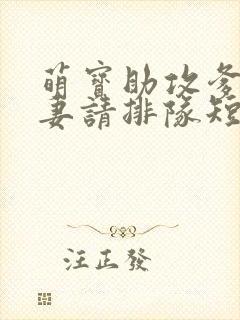 萌寶助攻爹
妻請排隊短
汪正發